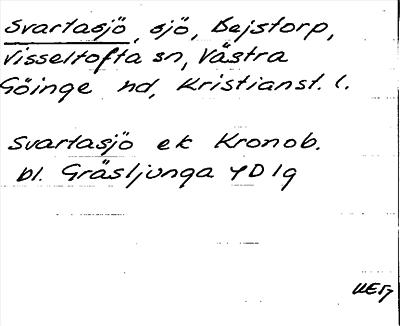 Svartasjö, sjö, Bejstorp,
Visseltofta sn, Västra
Göinge hd, Kristianst. l.
Svartasjö ek Kronob.
bl. Gräsljunga 4D1g